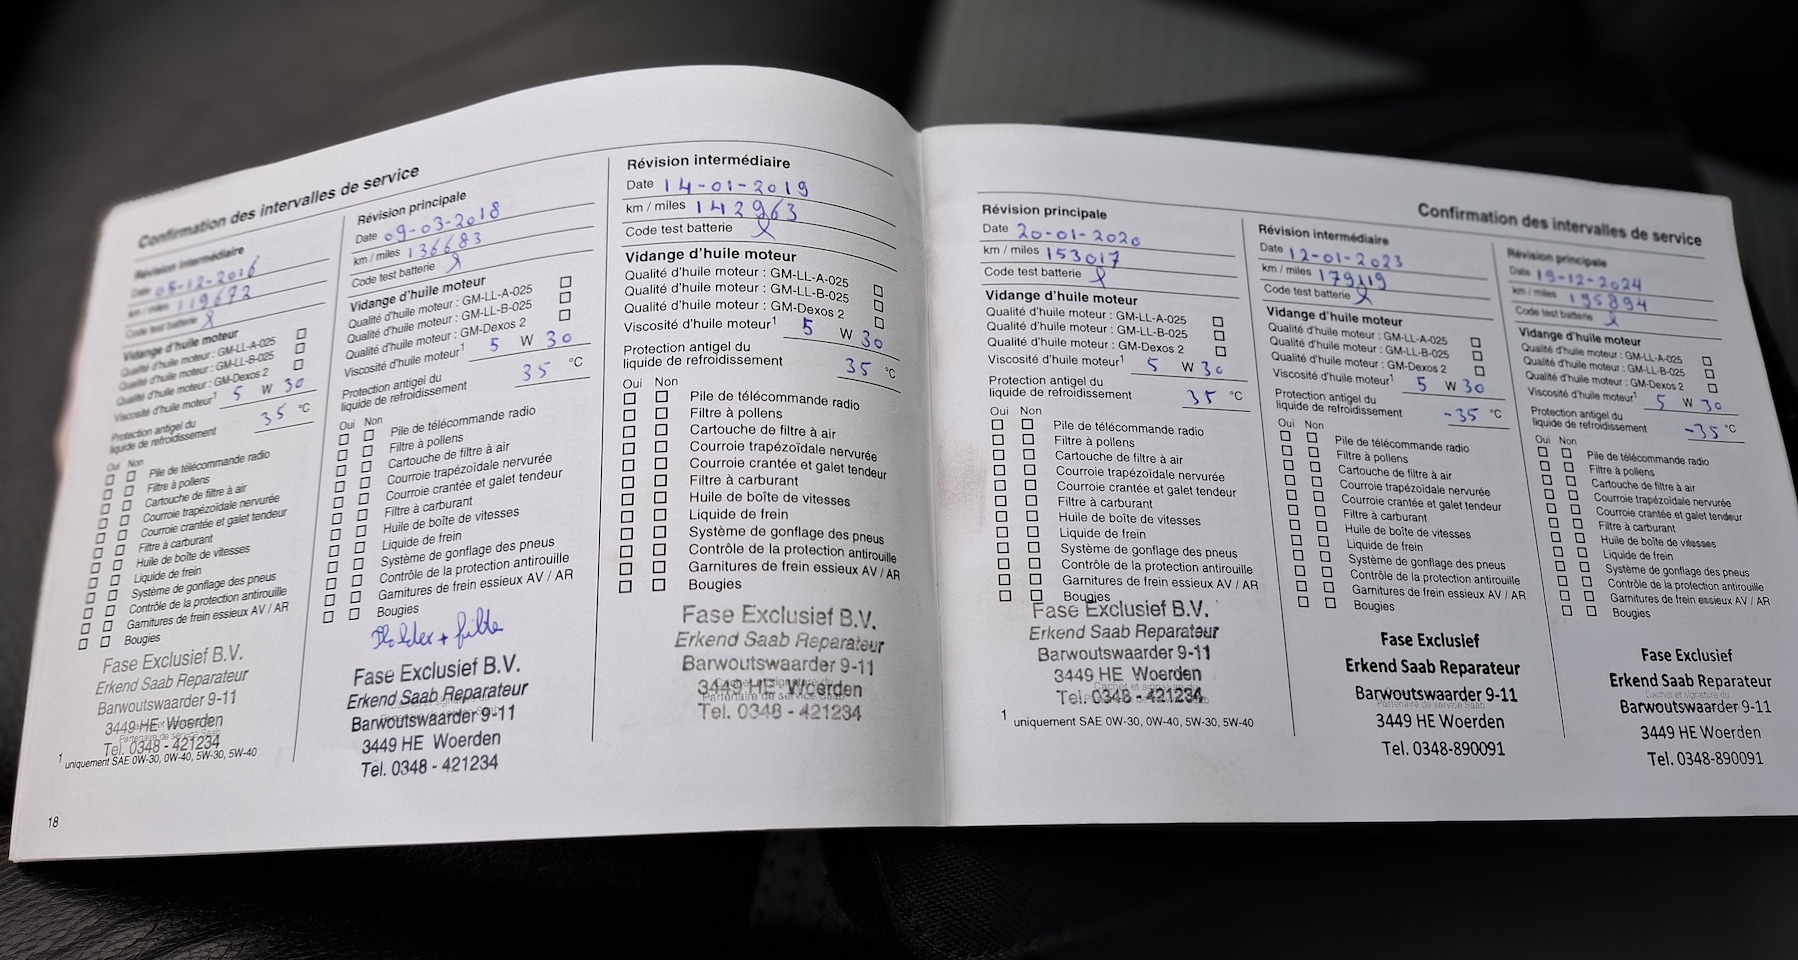 Confirmation des intervalles de service
Révision intermédiaire
Date 05-12-2016
km / miles 119672
Code test batterie
Vidange d'huile moteur
Qualité d'huile moteur : GM-LL-A-025
Qualité d'huile moteur : GM-LL-B-025
Qualité d'huile moteur : GM-Dexos 2
Viscosité d'huile moteur¹ 5 W 30
Protection antigel du
liquide de refroidissement 35 °C
Oui Non
Pile de télécommande radio
Filtre à pollens
Cartouche de filtre à air
Courroie trapézoïdale nervurée
Courroie crantée et galet tendeur
Filtre à carburant
Huile de boîte de vitesses
Liquide de frein
Système de gonflage des pneus
Contrôle de la protection antirouille
Garnitures de frein essieux AV / AR
Bougies
Fase Exclusief B.V.
Erkend Saab Reparateur
Barwoutswaarder 9-11
3449 HE Woerden
Tel. 0348 - 421234
¹ uniquement SAE 0W-30, 0W-40, 5W-30, 5W-40
18
Révision principale
Date 09-03-2018
km / miles 136683
Code test batterie
Vidange d'huile moteur
Qualité d'huile moteur : GM-LL-A-025
Qualité d'huile moteur : GM-LL-B-025
Qualité d'huile moteur : GM-Dexos 2
Viscosité d'huile moteur¹ 5 W 30
Protection antigel du
liquide de refroidissement 35 °C
Oui Non
Pile de télécommande radio
Filtre à pollens
Cartouche de filtre à air
Courroie trapézoïdale nervurée
Courroie crantée et galet tendeur
Filtre à carburant
Huile de boîte de vitesses
Liquide de frein
Système de gonflage des pneus
Contrôle de la protection antirouille
Garnitures de frein essieux AV / AR
Bougies
Fase Exclusief B.V.
Erkend Saab Reparateur
Barwoutswaarder 9-11
3449 HE Woerden
Tel. 0348 - 421234
Révision intermédiaire
Date 14-01-2019
km / miles 142963
Code test batterie
Vidange d'huile moteur
Qualité d'huile moteur : GM-LL-A-025
Qualité d'huile moteur : GM-LL-B-025
Qualité d'huile moteur : GM-Dexos 2
Viscosité d'huile moteur¹ 5 W 30
Protection antigel du
liquide de refroidissement 35 °C
Oui Non
Pile de télécommande radio
Filtre à pollens
Cartouche de filtre à air
Courroie trapézoïdale nervurée
Courroie crantée et galet tendeur
Filtre à carburant
Huile de boîte de vitesses
Liquide de frein
Système de gonflage des pneus
Contrôle de la protection antirouille
Garnitures de frein essieux AV / AR
Bougies
Fase Exclusief B.V.
Erkend Saab Reparateur
Barwoutswaarder 9-11
3449 HE Woerden
Cachet et signature du
Partenaire de service Saab
Tel. 0348 - 421234
Confirmation des intervalles de service
Révision principale
Date 20-01-2020
km / miles 153017
Code test batterie
Vidange d'huile moteur
Qualité d'huile moteur : GM-LL-A-025
Qualité d'huile moteur : GM-LL-B-025
Qualité d'huile moteur : GM-Dexos 2
Viscosité d'huile moteur¹ 5 W 30
Protection antigel du
liquide de refroidissement 35 °C
Oui Non
Pile de télécommande radio
Filtre à pollens
Cartouche de filtre à air
Courroie trapézoïdale nervurée
Courroie crantée et galet tendeur
Filtre à carburant
Huile de boîte de vitesses
Liquide de frein
Système de gonflage des pneus
Contrôle de la protection antirouille
Garnitures de frein essieux AV / AR
Bougies
Fase Exclusief B.V.
Erkend Saab Reparateur
Barwoutswaarder 9-11
3449 HE Woerden
Tel. 0348 - 421234
¹ uniquement SAE 0W-30, 0W-40, 5W-30, 5W-40
Révision intermédiaire
Date 12-01-2023
km / miles 179119
Code test batterie
Vidange d'huile moteur
Qualité d'huile moteur : GM-LL-A-025
Qualité d'huile moteur : GM-LL-B-025
Qualité d'huile moteur : GM-Dexos 2
Viscosité d'huile moteur¹ 5 W 30
Protection antigel du
liquide de refroidissement -35 °C
Oui Non
Pile de télécommande radio
Filtre à pollens
Cartouche de filtre à air
Courroie trapézoïdale nervurée
Courroie crantée et galet tendeur
Filtre à carburant
Huile de boîte de vitesses
Liquide de frein
Système de gonflage des pneus
Contrôle de la protection antirouille
Garnitures de frein essieux AV / AR
Bougies
Fase Exclusief
Erkend Saab Reparateur
Barwoutswaarder 9-11
Partenaire de service Saab
3449 HE Woerden
Tel. 0348-890091
Révision principale
Date 19-12-2024
km / miles 195894
Code test batterie
Vidange d'huile moteur
Qualité d'huile moteur : GM-LL-A-025
Qualité d'huile moteur : GM-LL-B-025
Qualité d'huile moteur : GM-Dexos 2
Viscosité d'huile moteur¹ 5 W 30
Protection antigel du
liquide de refroidissement -35 °C
Oui Non
Pile de télécommande radio
Filtre à pollens
Cartouche de filtre à air
Courroie trapézoïdale nervurée
Courroie crantée et galet tendeur
Filtre à carburant
Huile de boîte de vitesses
Liquide de frein
Système de gonflage des pneus
Contrôle de la protection antirouille
Garnitures de frein essieux AV / AR
Bougies
Fase Exclusief
Erkend Saab Reparateur
Cachet et signature du
Barwoutswaarder 9-11
Partenaire de service Saab
3449 HE Woerden
Tel. 0348-890091